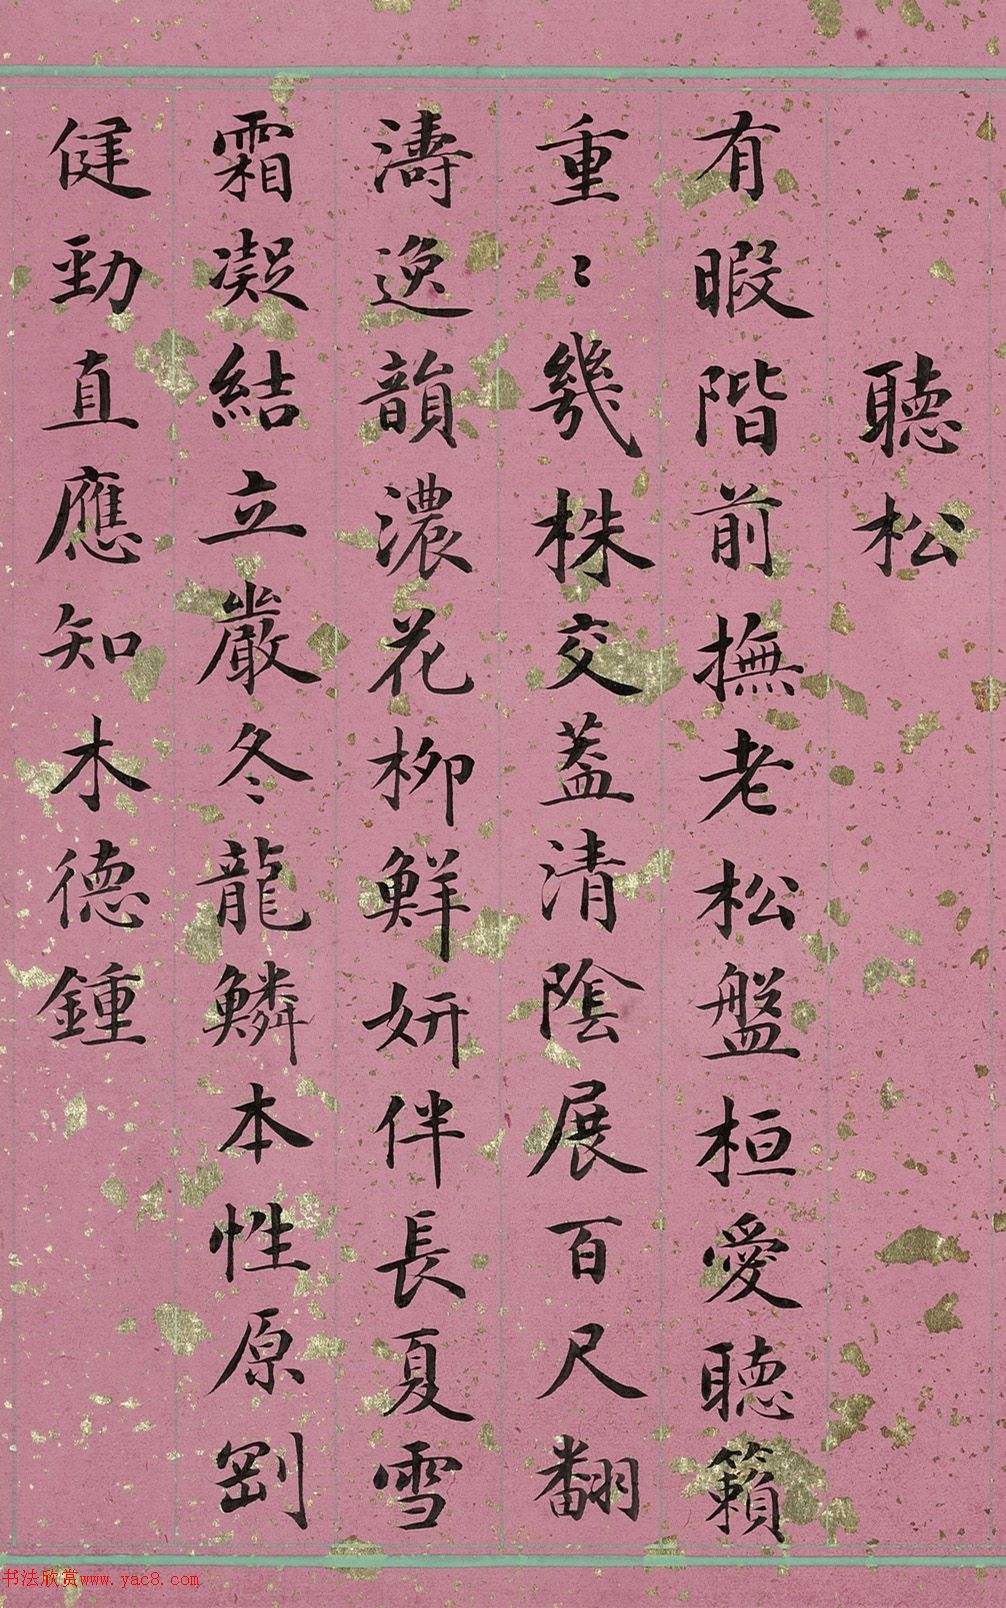 聽松
有暇階前撫老松盤桓愛聽籟
重〻幾株交蓋清陰展百尺翻
濤逸韻濃花柳鮮妍伴長夏雪
霜凝結立嚴冬龍鱗本性原剛
健勁直應知木德鍾
书法欣赏www.yac8.com